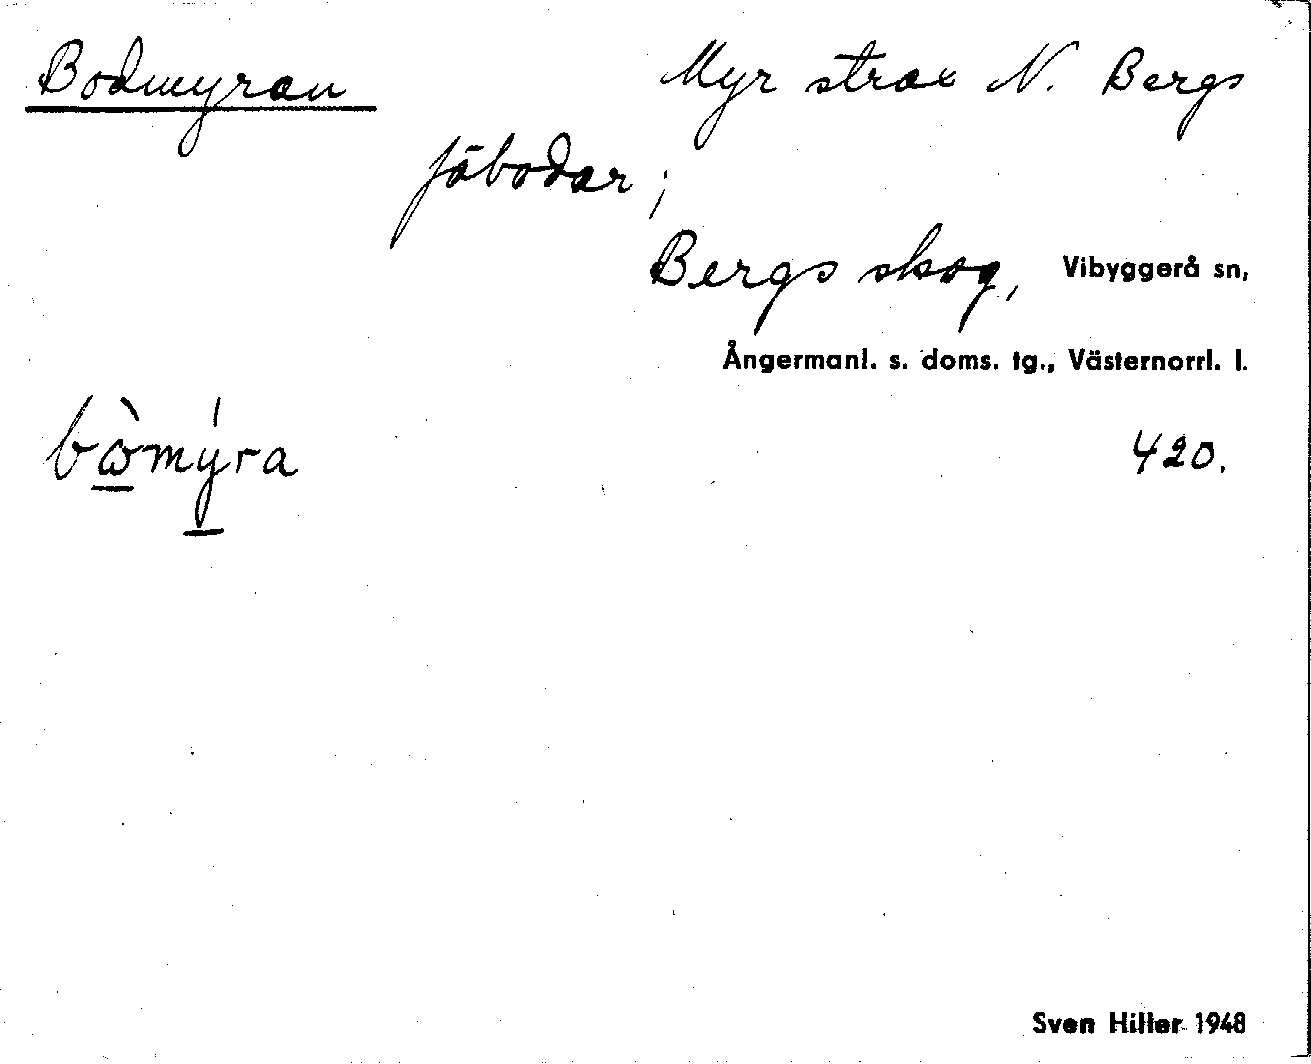 Bodmyran Myr strax N. Bergs
fäbodar;
Bergs skog, Vibyggerå sn,
Ångermanl. s. doms. tg., Västernorrl. l.
bὼmýra 420.
Sven Hiller 1948